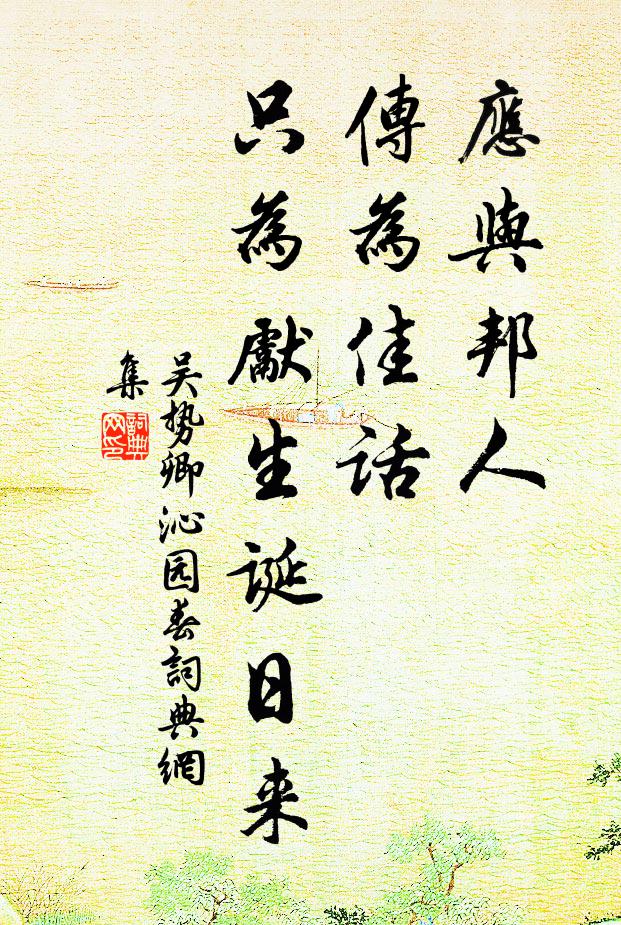 應與邦人
傳為佳話
只為獻生誕日来
吴势卿沁园春詞典網
集
詞典网印